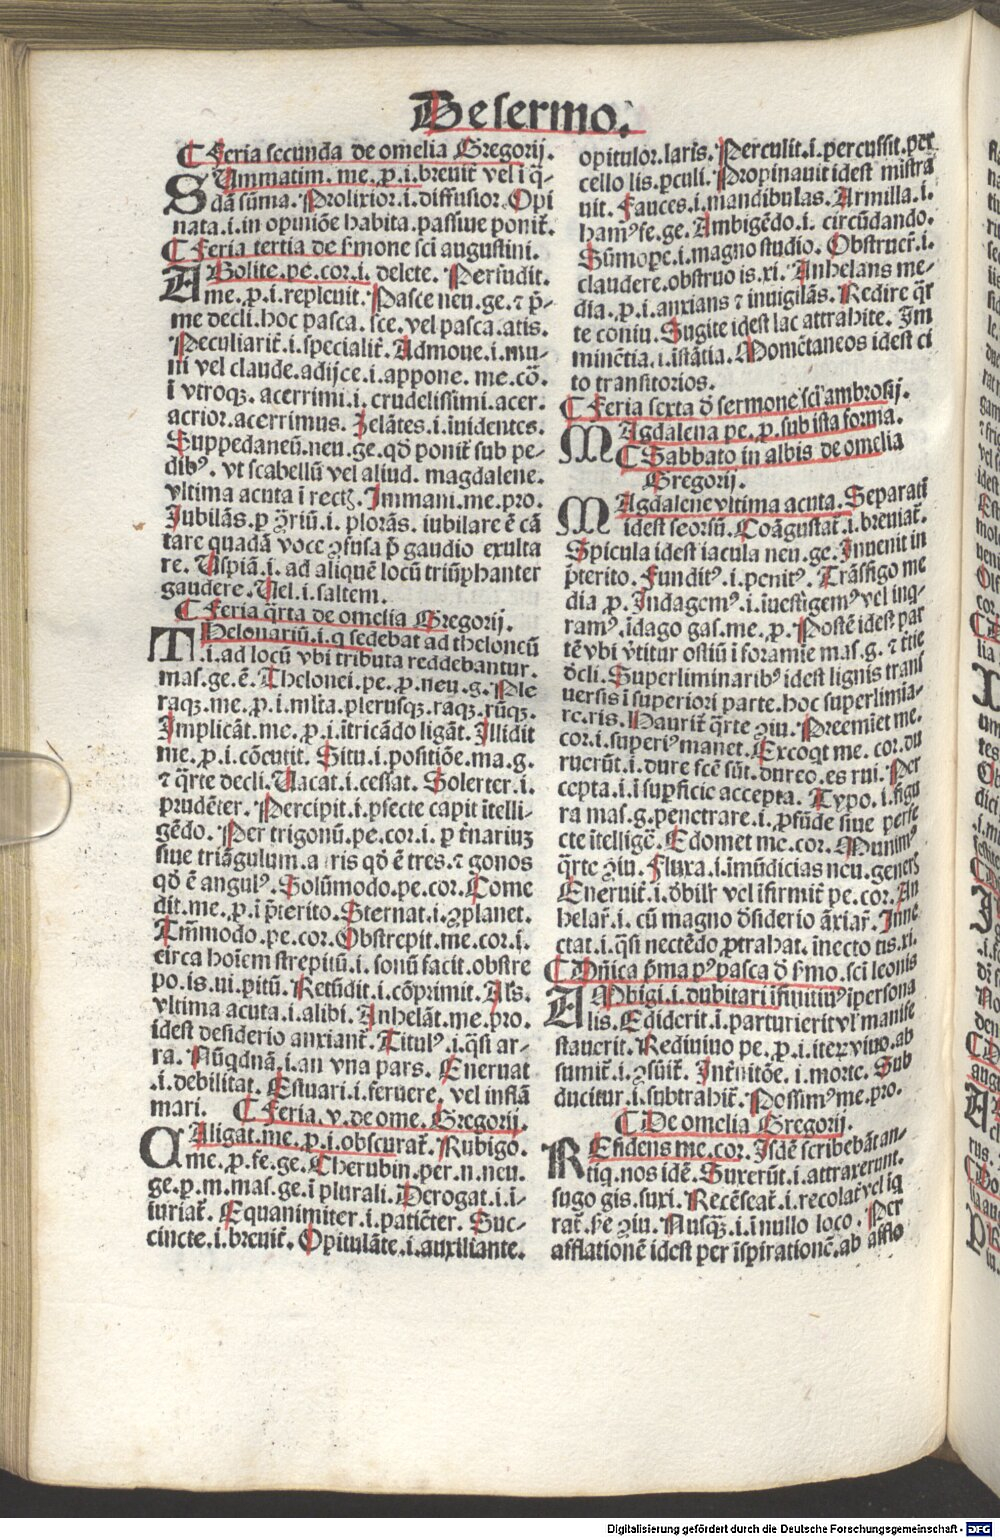 De sermo.
¶ Feria secunda de omelia Gregorij.
SUmmatim. me. ꝑ. i. breuit̃ vel ĩ q̃-
dã sũma. Prolixior. i. diffusior. Opi
nata. i. in opiniõe habita. passiue ponit᷑.
¶ Feria tertia de s̃mone sci augustini.
ABolite. pe. cor. i. delete. Persũdit.
me. ꝑ. i. repleuit. Pasce neu. ge. ⁊ p̃-
me decli. hoc pasca. sce. vel pasca. atis.
Peculiarit̃. i. specialit̃. Admoue. i. mu-
ni vel claude. adijce. i. appone. me. cõ.
ĩ vtroqꝫ. acerrimi. i. crudelissimi. acer.
acrior. acerrimus. Zelãtes. i. inuidentes.
Suppedaneũ. neu. ge. qđ ponit᷑ sub pe-
dibꝰ. vt scabellũ vel aliud. magdalene.
vltima acuta ĩ rectꝫ. Immani. me. pro.
Iubilãs. ꝑ ꝯ̃riũ. i. plorãs. iubilare ẽ cã
tare quadã voce ꝯfusa p̃ gaudio exulta
re. Uspiã. i. ad aliquẽ locũ triũphanter
gaudere. Uel. i. saltem.
¶ Feria q̃rta de omelia Gregorij.
THelonariũ. i. q sedebat ad theloneũ
.i. ad locũ vbi tributa reddebantur.
mas. ge. ẽ. Thelonei. pe. ꝑ. neu. g. Ple
raqꝫ. me. ꝑ. i. ml̃ta. plerusqꝫ. raqꝫ. rũqꝫ.
Implicãt. me. ꝑ. i. ĩtricãdo ligãt. Illidit
me. ꝑ. i. cõcutit. Situ. i. positiõe. ma. g.
⁊ q̃rte decli. Uacat. i. cessat. Solerter. i.
prudẽter. Percipit. i. ꝑfecte capit ĩtelli-
gẽdo. Per trigonũ. pe. cor. i. ꝑ t̃nariuꝫ
siue triãgulum. a tris qđ ẽ tres. ⁊ gonos
qđ ẽ angulꝰ. Solũmodo. pe. cor. Come
dit. me. ꝑ. ĩ p̃terito. Sternat. i. ꝯplanet.
Tm̃modo. pe. cor. Obstrepit. me. cor. i.
circa hoĩem strepitũ. i. sonũ facit. obstre
po. is. ui. pitũ. Retũdit. i. cõprimit. Al̃s.
vltima acuta. i. alibi. Anhelãt. me. pro.
idest desiderio anxiant᷑. Titulꝰ. i. q̃si ar-
ra. Nũqdnã. i. an vna pars. Eneruat
.i. debilitat. Estuari. i. feruere. vel inflã
mari.   ¶ Feria. v. de ome. Gregorij.
CAligat. me. ꝑ. i. obscurat᷑. Rubigo.
me. ꝑ. fe. ge. Cherubin. per. n. neu.
ge. ꝑ. m. mas. ge. ĩ plurali. Derogat. i. i-
ĩuriat᷑. Equanimiter. i. patiẽter. Suc-
cincte. i. breuit̃. Opitulãte. i. auxiliante.
opitulor. laris. Perculit. i. percussit. per
cello lis. ꝑculi. Propinauit idest mistra
uit. Fauces. i. mandibulas. Armilla. i.
hamꝰ fe. ge. Ambigẽdo. i. circũdando.
Sũmoꝑe. i. magno studio. Obstruer̃. i.
claudere. obstruo is. xi. Anhelans me-
dia. ꝑ. i. anxians ⁊ inuigilãs. Redire q̃r
te coniu. Sugite idest lac attrahite. Im
minẽtia. i. ĩstãtia. Momẽtaneos idest ci
to transitorios.
¶ Feria sexta đ sermone sci ambrosij.
MAgdalena pe. ꝑ. sub ista forma.
¶ Sabbato in albis de omelia
Gregorij.
MAgdalene vltima acuta. Separati
idest seorsũ. Coãgustat᷑. i. breuiat᷑.
Spicula idest iacula neu. ge. Inuenit in
p̃terito. Funditꝰ. i. penitꝰ. Trãsfigo me
dia ꝑ. Indagemꝰ. i. ĩuestigemꝰ vel inq̃-
ramꝰ. ĩdago gas. me. ꝑ. Postẽ idest par
tẽ vbi v̉titur ostiũ ĩ foramĩe mas. g. ⁊ t̃tie
đcli. Superliminaribꝰ idest lignis trans
uersis ĩ superiori parte. hoc superlimia-
re. ris. Haurit᷑ q̃rte ꝯiu. Preemĩet me.
cor. i. superiꝰ manet. Excoqt me. cor. du
ruerũt. i. dure fcẽ sũt. dureo. es rui. Per
cepta. i. ĩ suꝑficie accepta. Typo. i. figu
ra mas. g. penetrare. i. ꝓfũde siue perfe
cte ĩtelligẽ. Edomet me. cor. Munimꝰ
q̃rte ꝯiu. Fluxa. i. ĩmũdicias neu. generꝭ
Eneruit᷑. i. đbilit᷑ vel ĩfirmit᷑ pe. cor. An
helat᷑. i. cũ magno đsiderio ãxiat᷑. Inne
ctat. i. q̃si nectẽdo ꝓtrahat. ĩnecto tis. xi.
¶ Dñica p̃ma pꝰ pasca đ s̃mo. sci leonis
AMbigi. i. dubitari ĩfinitiuꝰ ĩpersona
lis. Ediderit. i. parturierit vl̃ manife
stauerit. Rediuiuo pe. ꝑ. i. iteꝝ viuo. ab
sumit᷑. i. ꝯsũit᷑. Int̃nitõe. i. morte. Sub
ducitur. i. subtrahit᷑. Possimꝰ me. pro.
¶ De omelia Gregorij.
REsidens me. cor. Isdẽ scribebãt an-
tiq̃. nos idẽ. Suxerũt. i. attraxerunt.
sugo gis. suxi. Recẽseat᷑. i. recolat᷑ vel iq̃
rat᷑. sẽ ꝯiu. Nusqꝫ. i. ĩ nullo loco. Per
afflationẽ idest per ĩspirationẽ. ab afflo
Digitalisierung gefördert durch die Deutsche Forschungsgemeinschaft - DFG